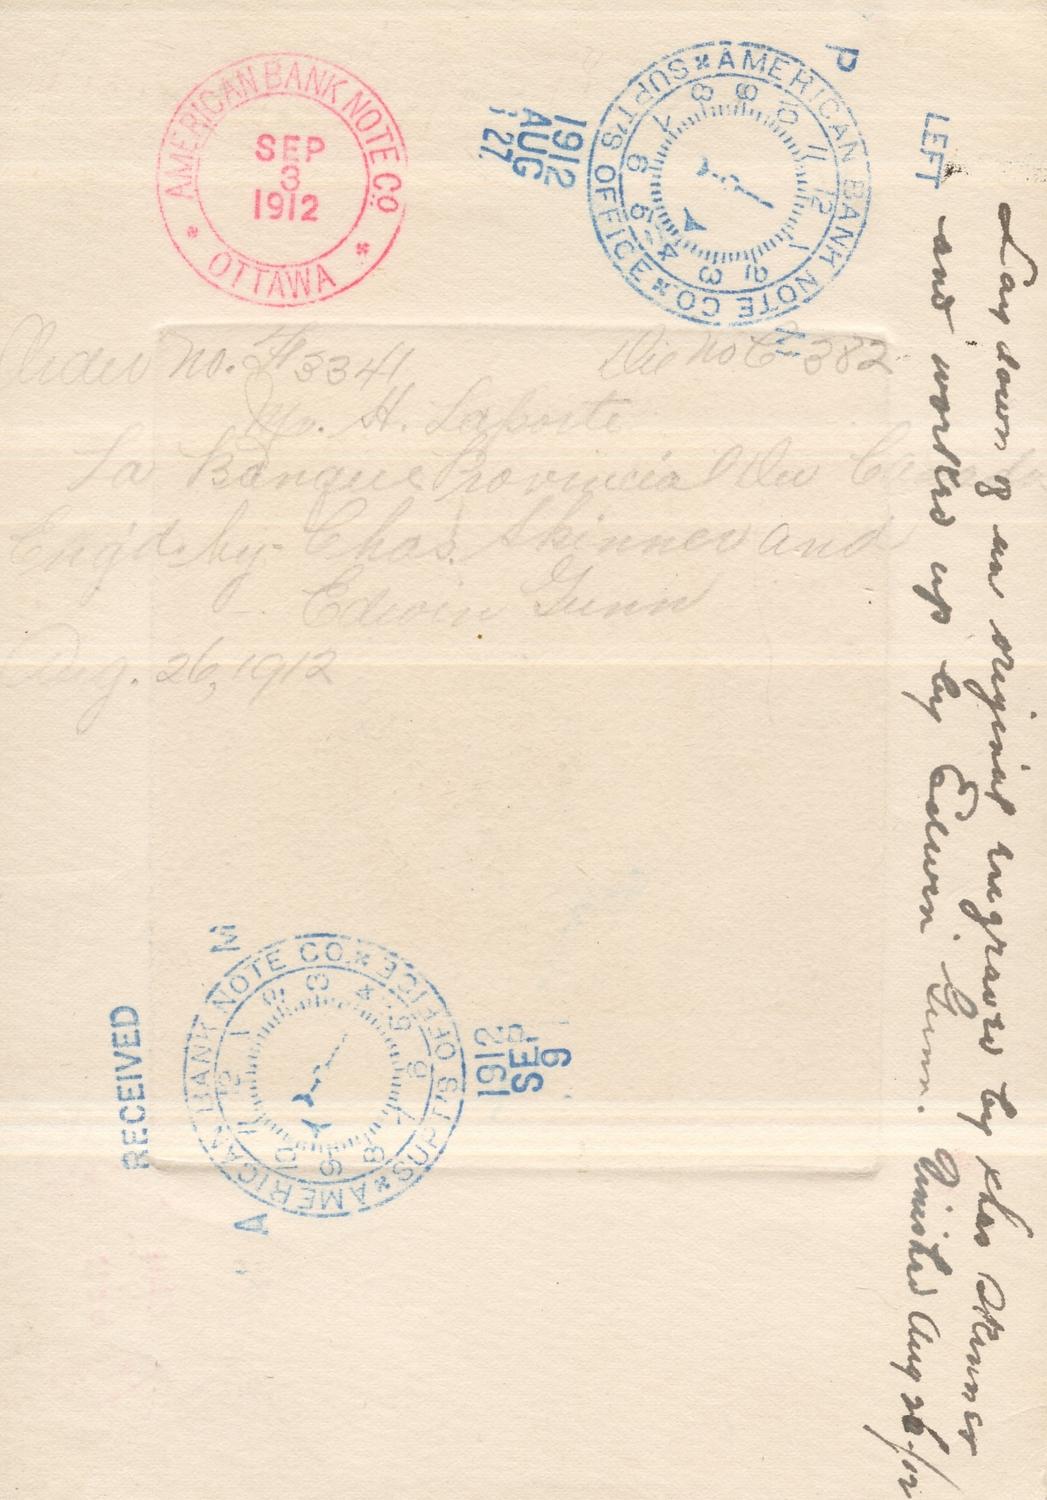 AMERICAN BANK NOTE CO.
OTTAWA
SEP
3
1912
AMERICAN BANK NOTE CO.
SUPT'S OFFICE
8 9 10 11 12 1 2 3 4 5 6 7
P
M
LEFT
1912
AUG
27
Order No. F 3341 Die No C-382
Mr. H. Laporte
La Banque Provincial Du Canada
Eng'd. by- Chas. Skinner and
Edwin Gunn
Aug. 26, 1912
Lay down of an original engraved by Chas Skinner
and worked up by Edwin Gunn. Finished Aug 26/12
RECEIVED
AMERICAN BANK NOTE CO.
SUPT'S OFFICE
1 2 3 4 5 6 7 8 9 10 11 12
A
M
1912
SEP
9